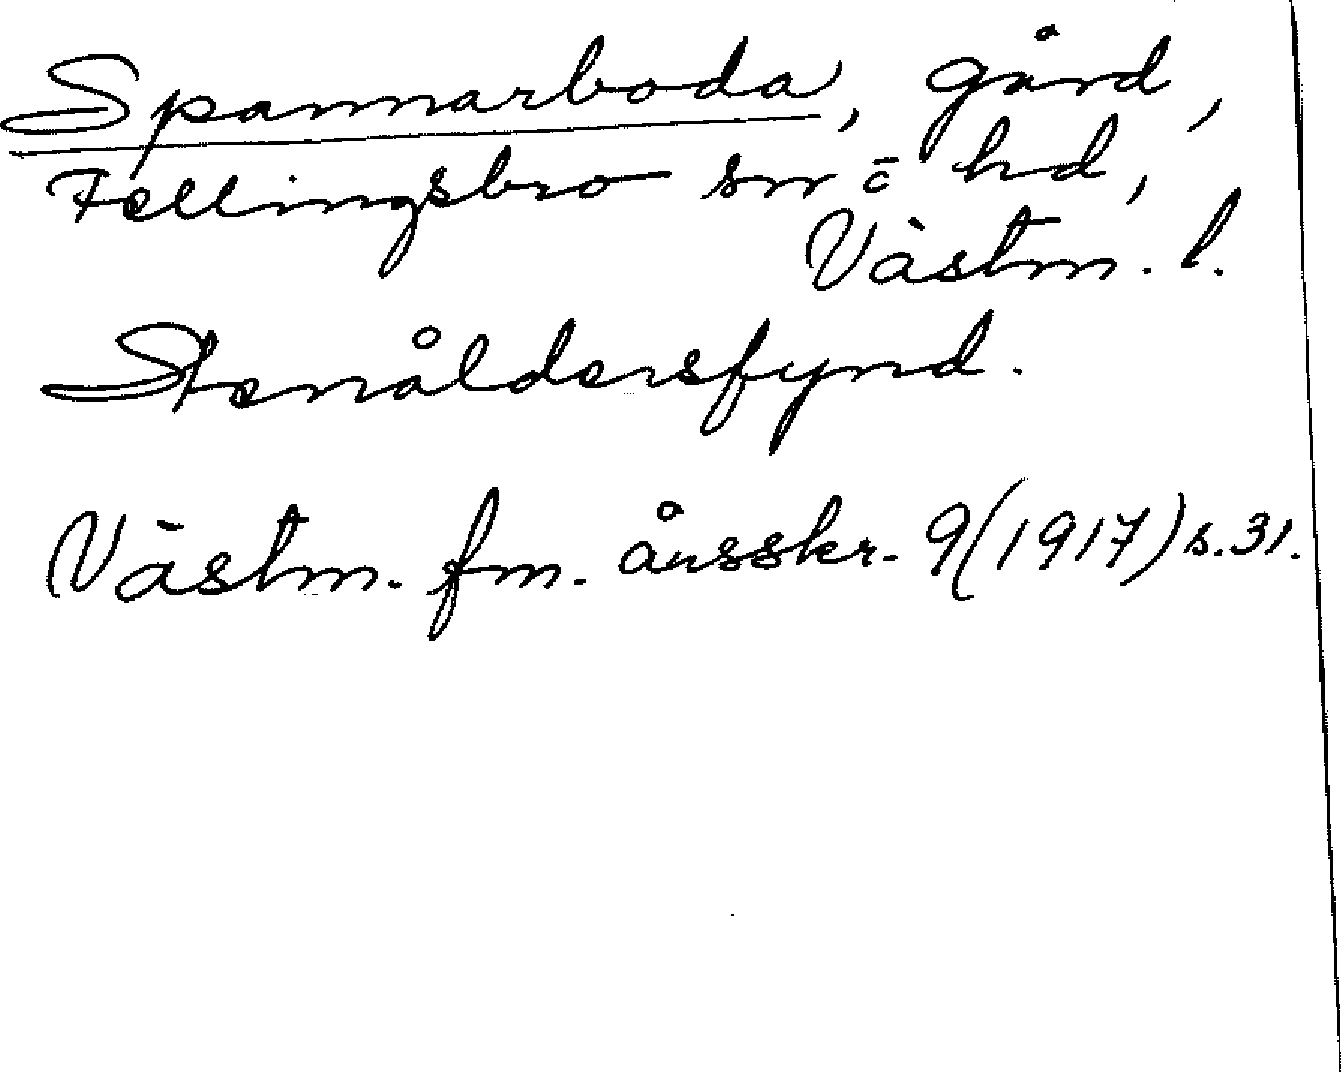 Spannarboda, gård,
Fellingsbro sn o hd,
Västm. l.
Stenåldersfynd.
Västm. fm. årsskr. 9(1917) s. 31.